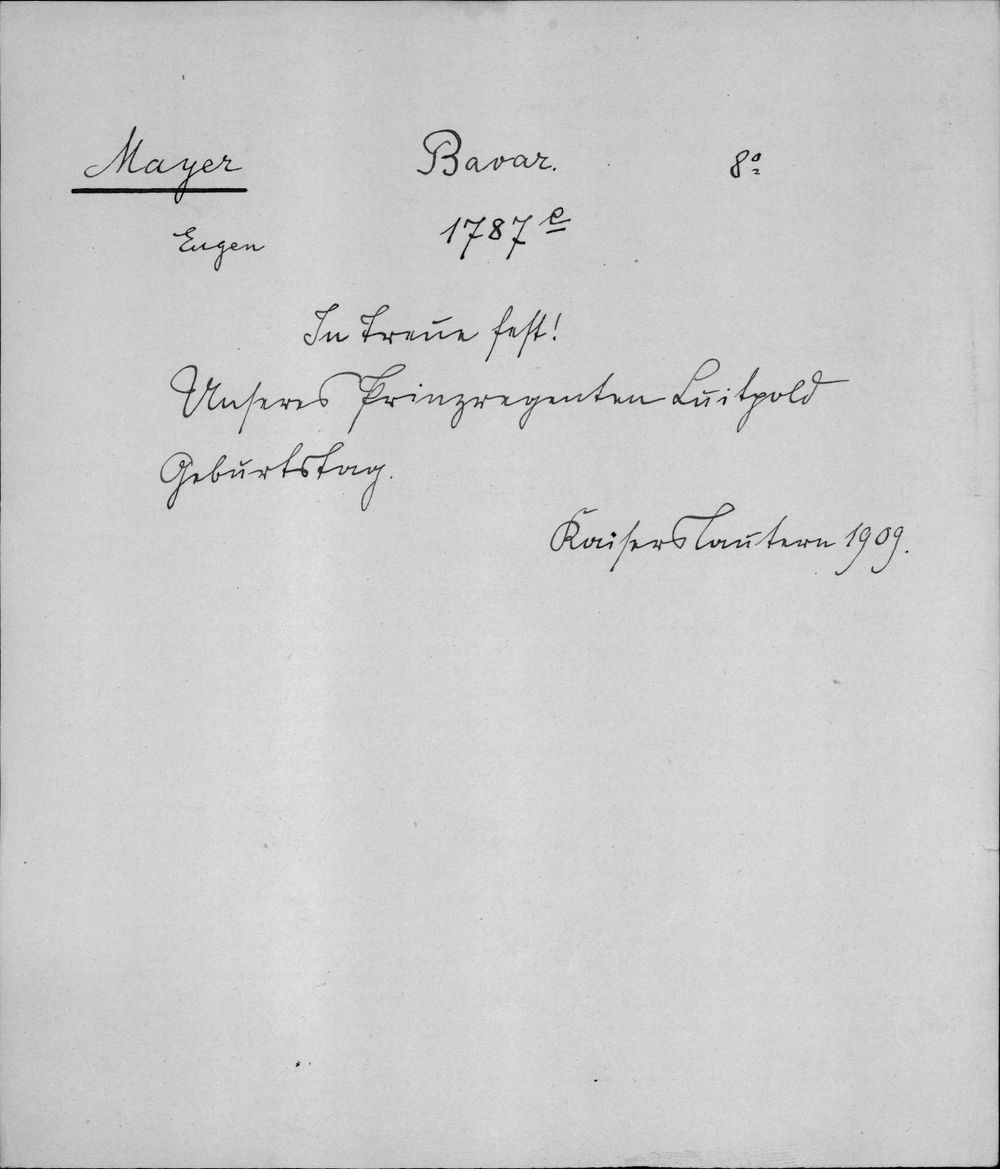 Mayer Bavar. 8º
Eugen 1787 e
In Treue fest!
Unseres Prinzregenten Luitpold
Geburtstag.
Kaiserslautern 1909.